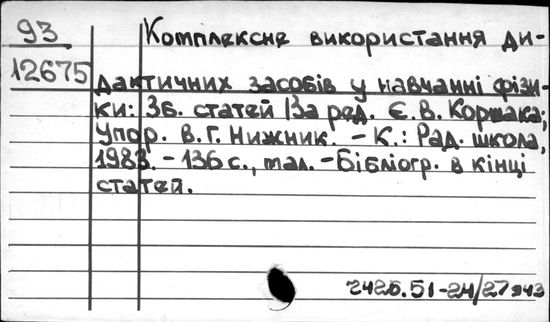 93 Комплексне використання ди-
12675 дактичних засобів у навчанні фізи-
ки: Зб. статей /За ред. Є.В. Коршака;
Упор. В.Г. Нижник. – К.: Рад. школа,
1983. – 136 с., мал. – Бібліогр. в кінці
статей.
242б.51-24/27 943